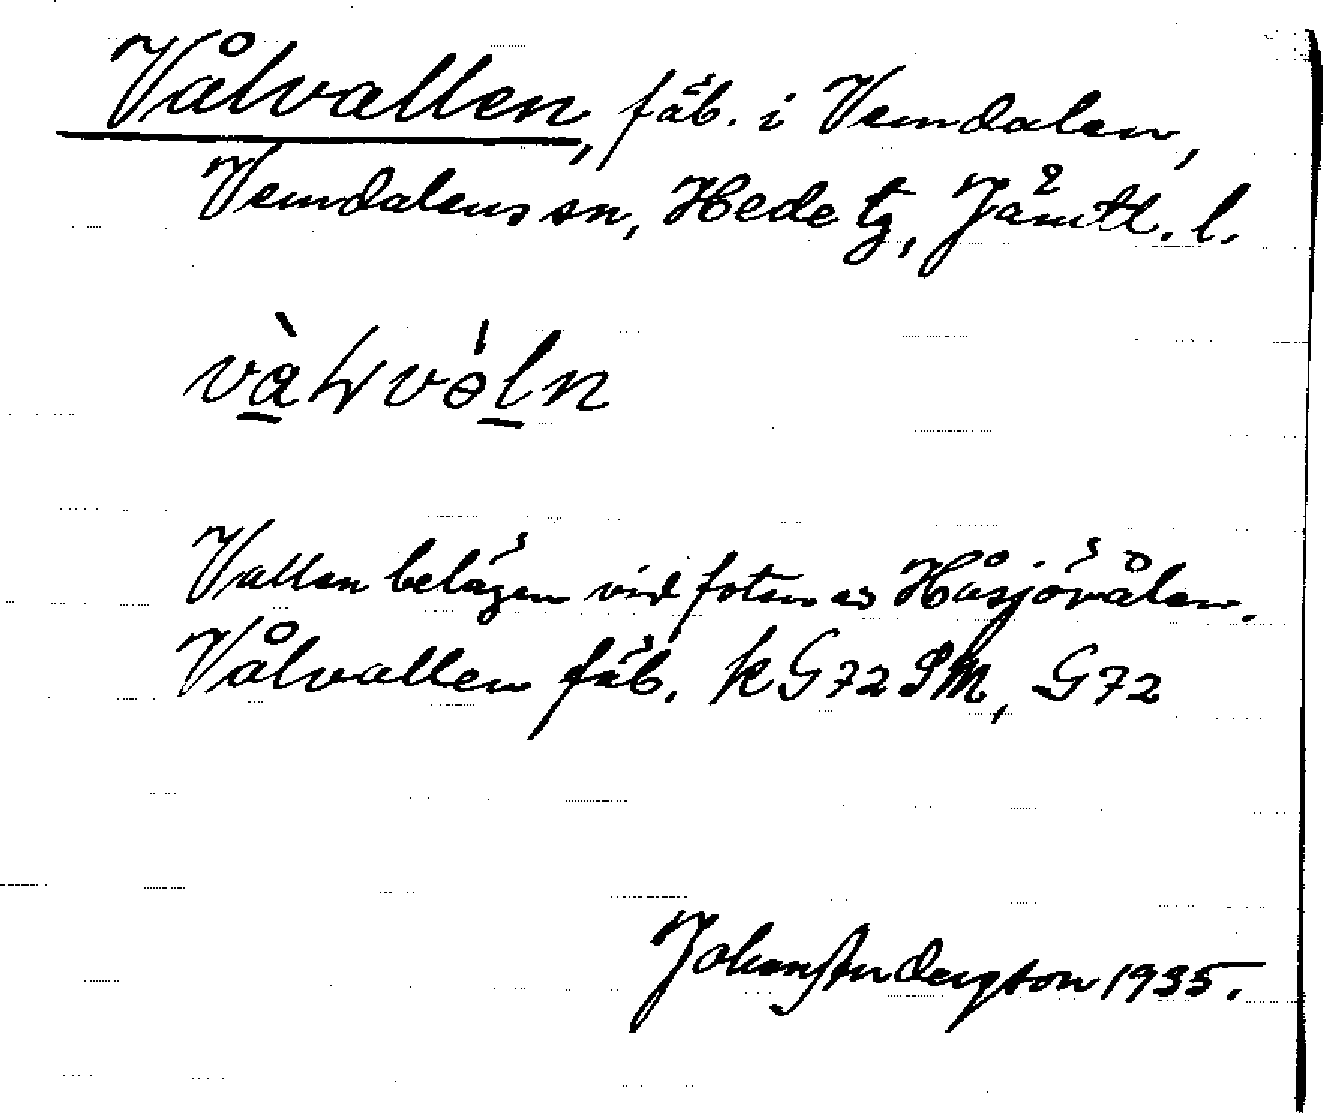 Vålvallen, fäb. i Vemdalen,
Vemdalens sn, Hede tg, Jämtl. l.
Vallen belägen vid foten av Håsjövålen.
Vålvallen fäb. k G72 SM, G72
Johan Anderzson 1935.